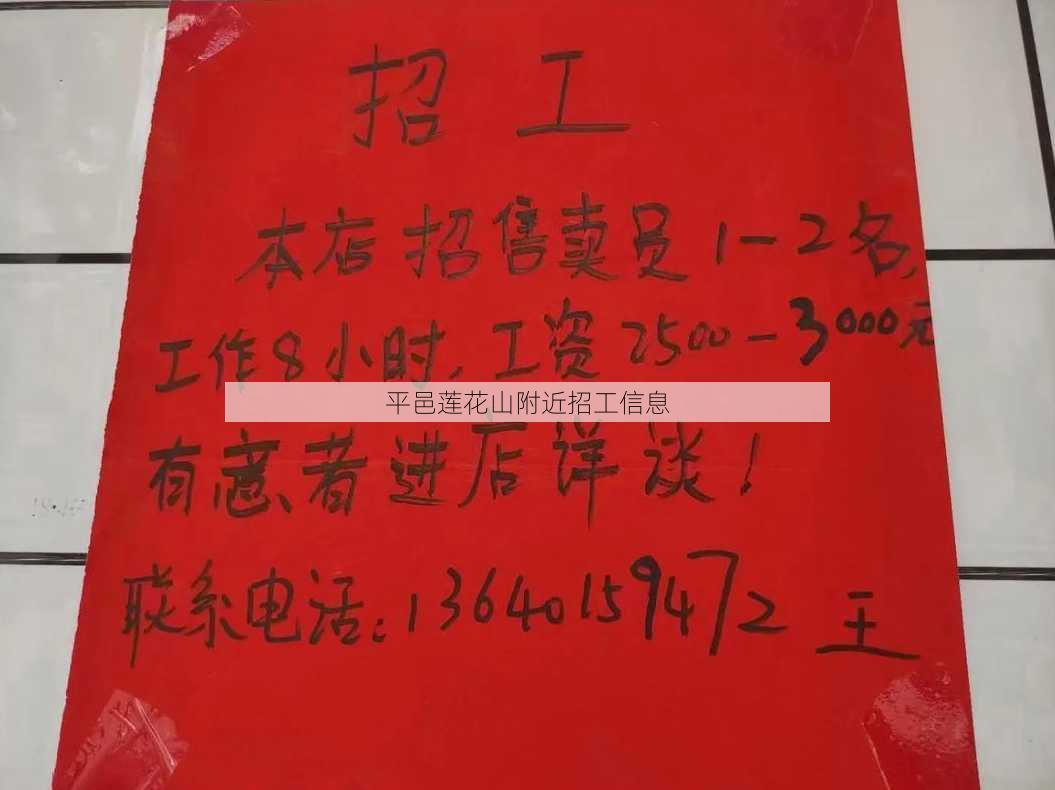 招工
本店招售卖员1-2名,
工作8小时,工资2500-3000元
平邑莲花山附近招工信息
有意者进店详谈!
联系电话:13640159472 王